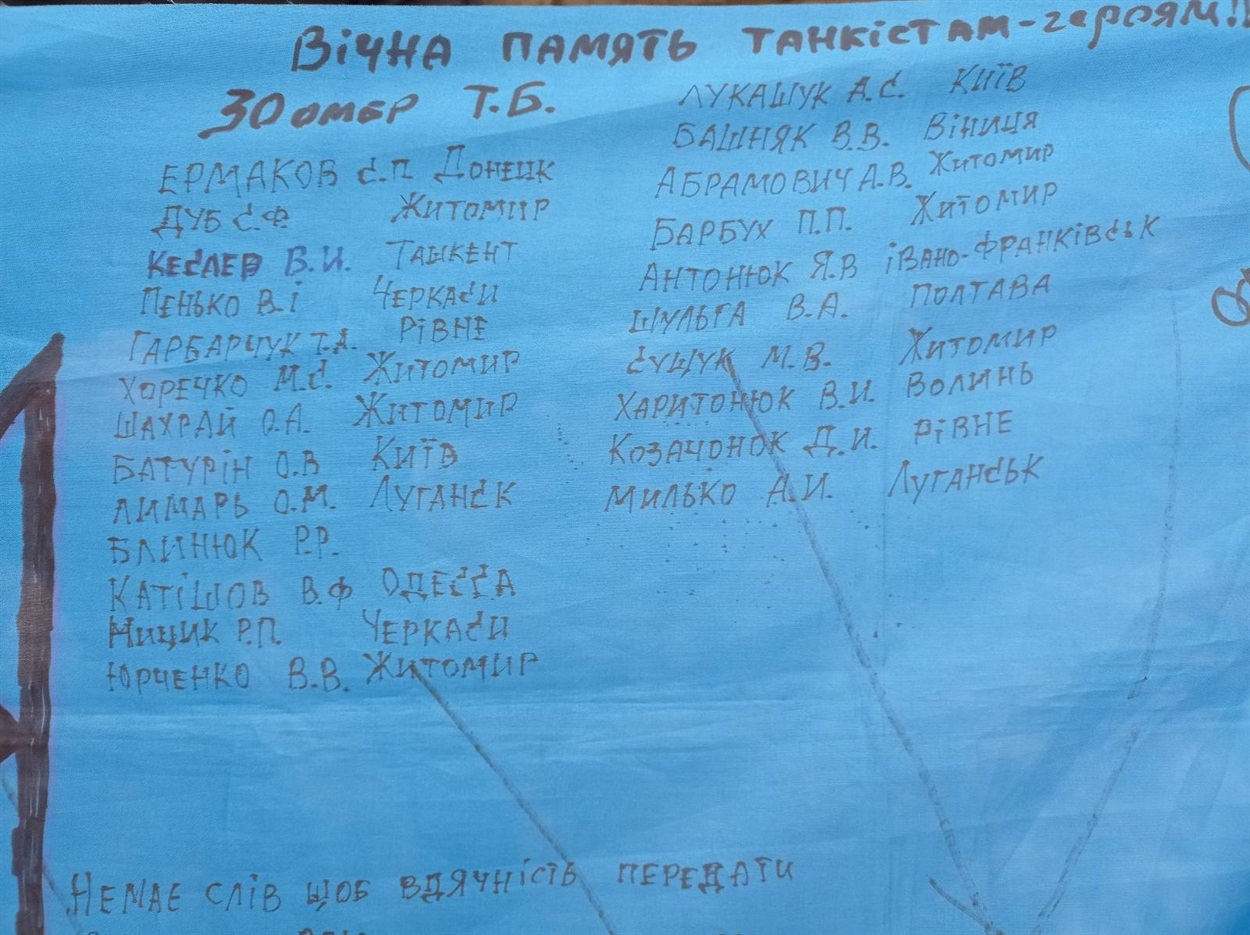 Вічна память танкістам-героям!!
30 омбр Т.Б.
ЕРМАКОВ С.П ДОНЕЦК
ДУБ С.Ф ЖИТОМИР
КЕСЛЕР В.И. ТАШКЕНТ
ПЕНЬКО В.І ЧЕРКАСИ
ГАРБАРЧУК Т.А. РІВНЕ
ХОРЕЧКО М.С. ЖИТОМИР
ШАХРАЙ О.А. ЖИТОМИР
БАТУРІН О.В КИЇВ
ЛИМАРЬ О.М. ЛУГАНСК
БЛИНЮК Р.Р.
КАТІШОВ В.Ф ОДЕССА
НИЦИК Р.П. ЧЕРКАСИ
ЮРЧЕНКО В.В. ЖИТОМИР
ЛУКАШУК А.С. КИЇВ
БАШНЯК В.В. ВІНИЦЯ
АБРАМОВИЧ А.В. ЖИТОМИР
БАРБУХ П.П. ЖИТОМИР
АНТОНЮК Я.В ІВАНО-ФРАНКІВСЬК
ШУЛЬГА В.А. ПОЛТАВА
СУЩУК М.В. ЖИТОМИР
ХАРИТОНЮК В.И. ВОЛИНЬ
КОЗАЧОНОК Д.И. РІВНЕ
МИЛЬКО А.И. ЛУГАНСЬК
НЕМАЄ СЛІВ ЩОБ ВДЯЧНІСТЬ ПЕРЕДАТИ